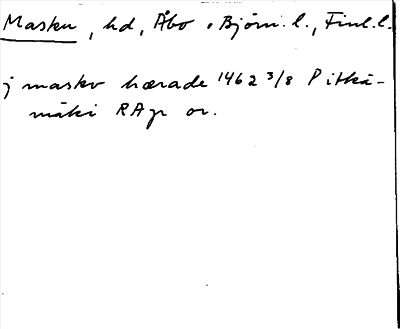 Masku, hd, Åbo o Björn. l., Finl. l.
j maskv hærade 1462 3/8 Pitkä-
mäki RAp or.